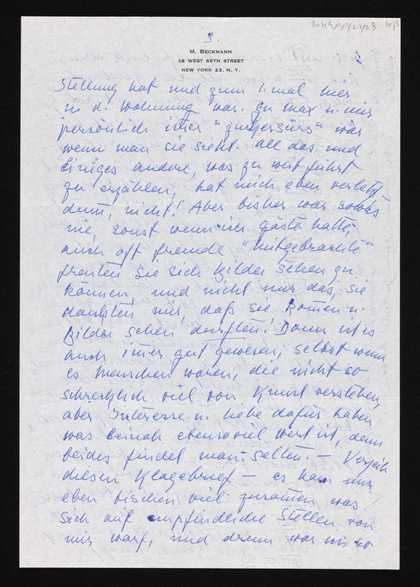 3.
M. BECKMANN
38 WEST 69TH STREET
NEW YORK 23, N. Y.
Stellung hat und zum 1. mal hier
in d. Wohnung war. Zu Max u. mir
persönlich immer "zuckersüss" war
wenn man sie sieht. All das und
Einiges andere, was zu weit führt
zu erzählen, hat mich eben verletzt
drum, nicht! Aber bisher war sowas
nie, sonst wenn ich Gäste hatte,
auch oft fremde "mitgebrachte"
freuten sie sich Bilder sehen zu
können und nicht nur das, sie
dankten mir, daß sie kommen u.
Bilder sehen durften! Dann ist es
auch immer gut gewesen, selbst wenn
es Menschen waren, die nicht so
schrecklich viel von Kunst verstehen,
aber Interesse u. Liebe dafür haben
was beinah ebensoviel wert ist, denn
beides findet man selten. — Verzeih
diesen Klagebrief — es kam nur
eben bischen viel zusammen, was
sich auf empfindliche Stellen von
mir warf, und drum war mir so